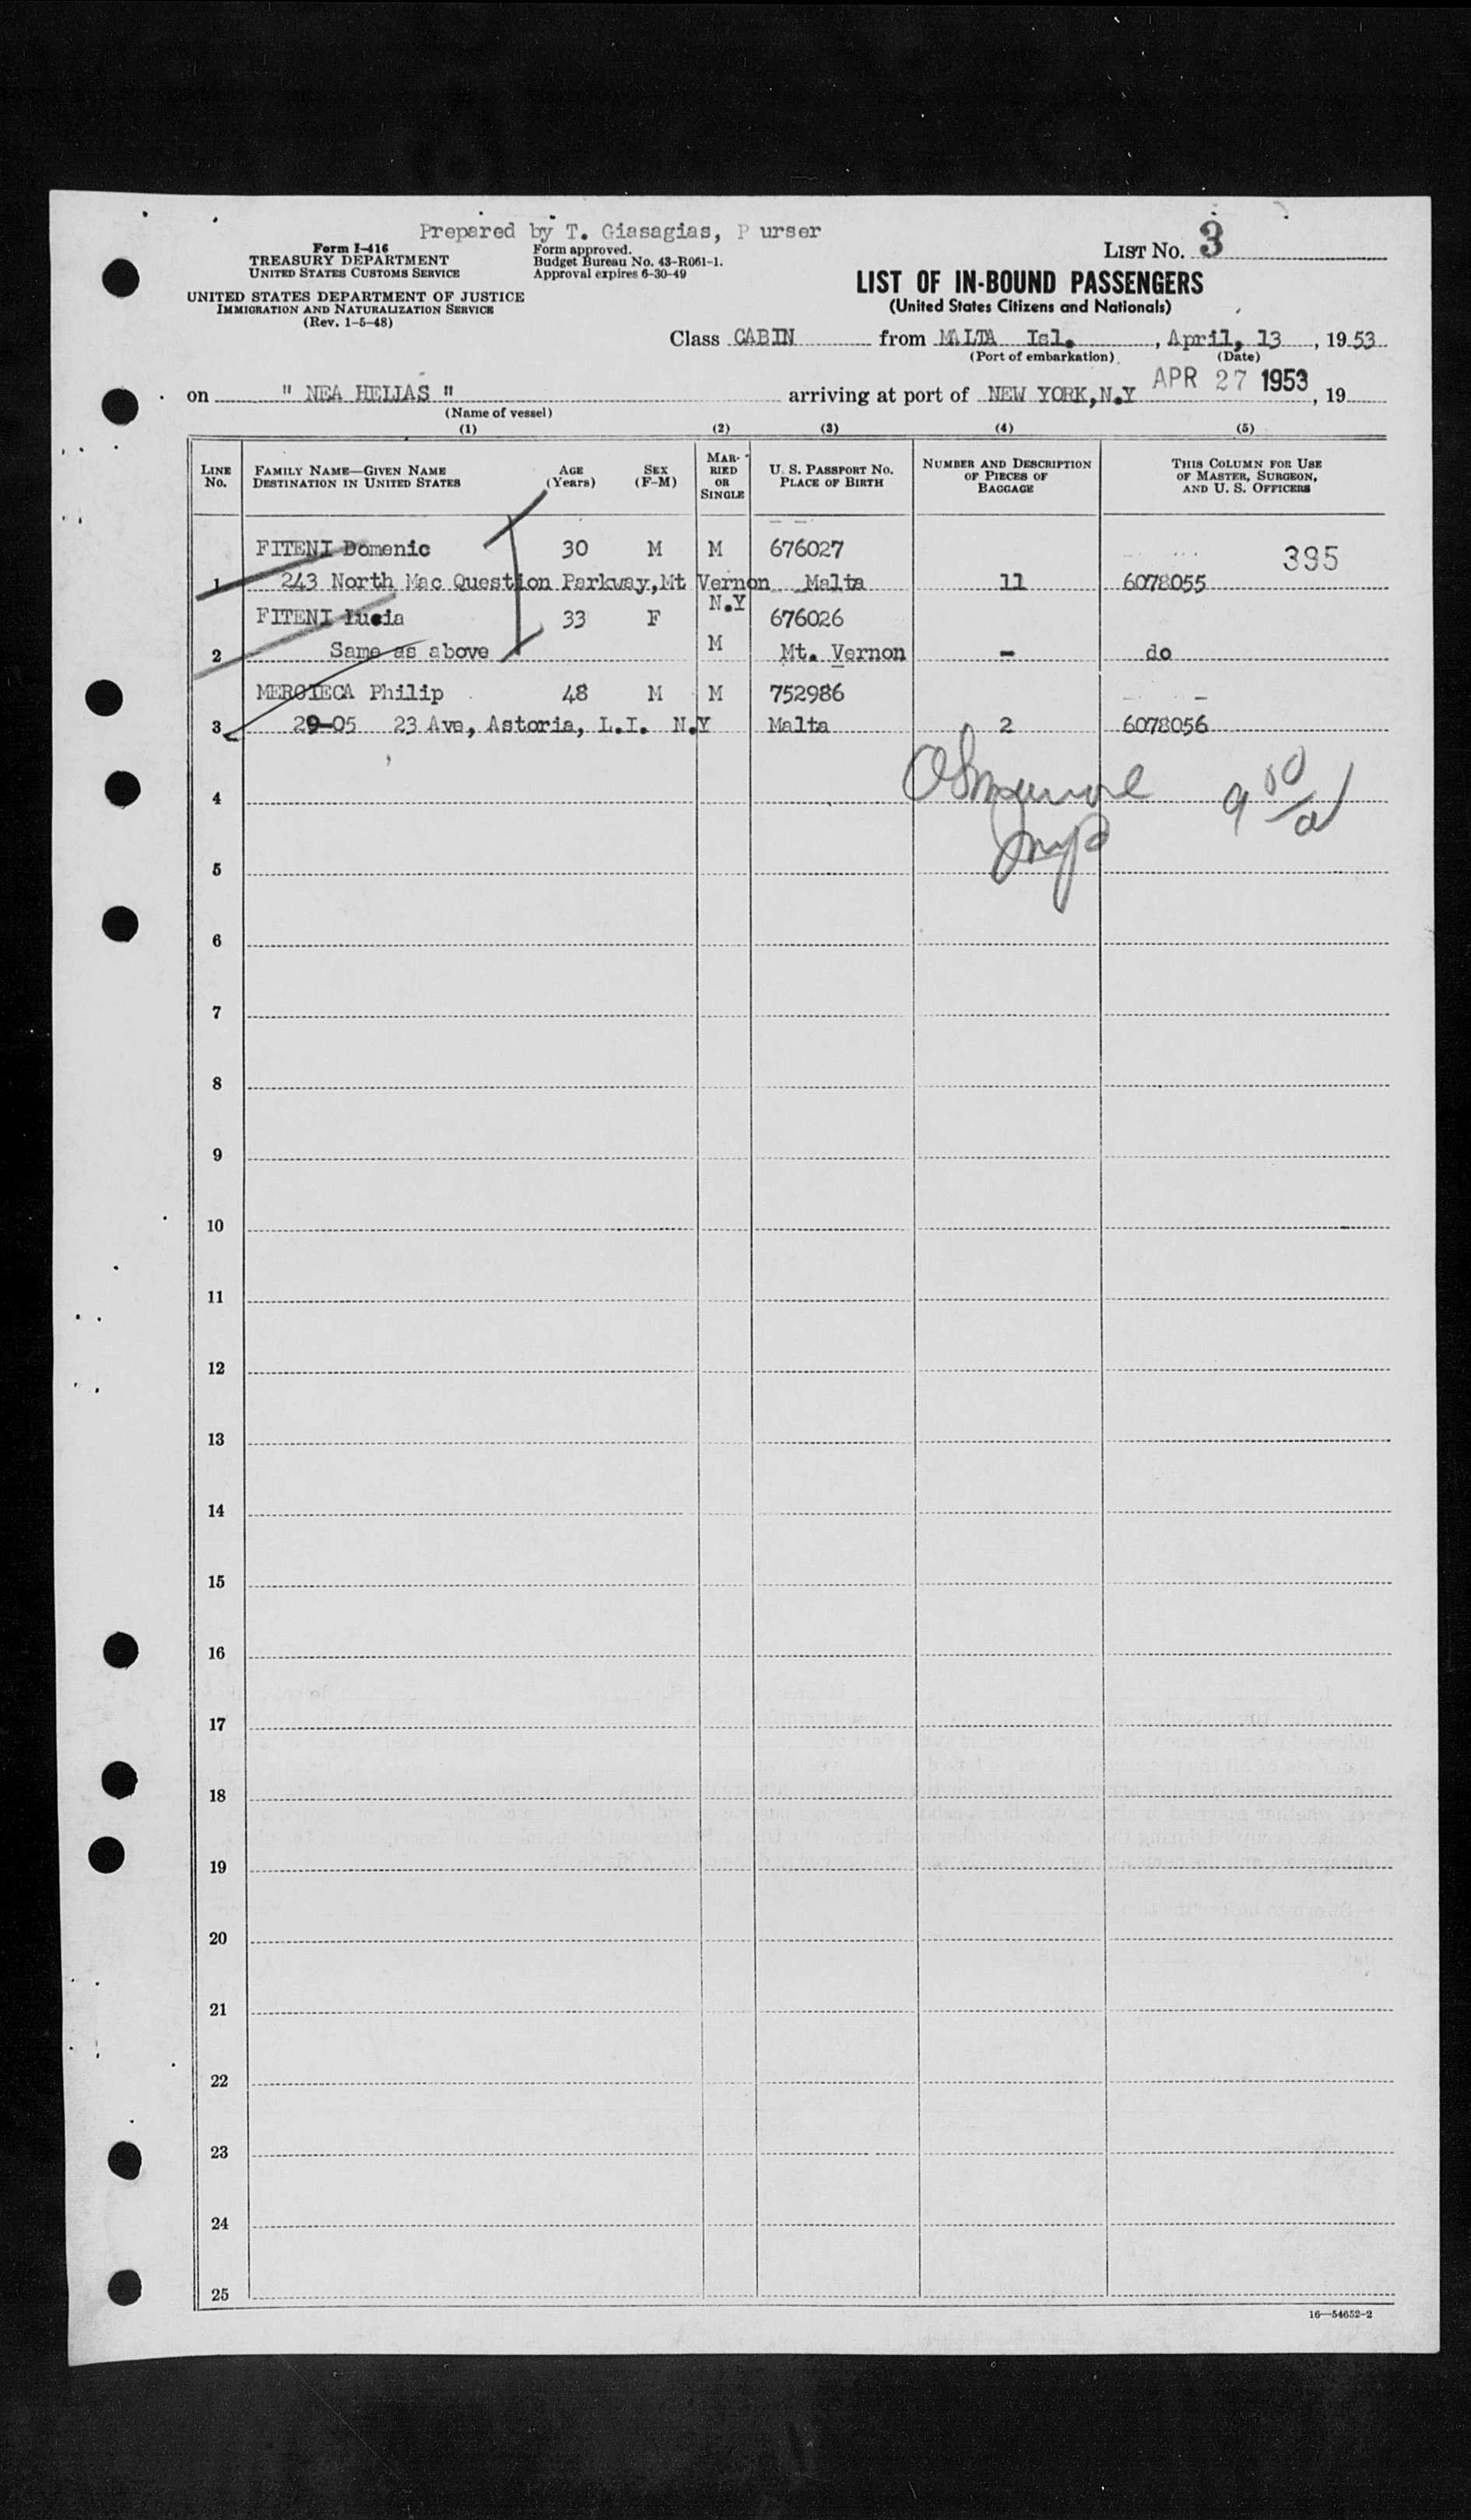 Prepared by T. Giasagias, P urser
Form I-416
TREASURY DEPARTMENT
UNITED STATES CUSTOMS SERVICE
Form approved.
Budget Bureau No. 43-R061-1.
Approval expires 6-30-49
UNITED STATES DEPARTMENT OF JUSTICE
IMMIGRATION AND NATURALIZATION SERVICE
(Rev. 1-5-48)
LIST NO. 3
LIST OF IN-BOUND PASSENGERS
(United States Citizens and Nationals)
Class CABIN from MALTA Isl. , April, 13 , 19 53
(Port of embarkation) (Date)
on " NEA HELIAS " arriving at port of NEW YORK, N.Y APR 27 1953 , 19
(Name of vessel)
(1) (2) (3) (4) (5)
LINE NO.
FAMILY NAME—GIVEN NAME
DESTINATION IN UNITED STATES
AGE
(Years)
SEX
(F-M)
MAR-
RIED
OR
SINGLE
U. S. PASSPORT NO.
PLACE OF BIRTH
NUMBER AND DESCRIPTION
OF PIECES OF
BAGGAGE
THIS COLUMN FOR USE
OF MASTER, SURGEON,
AND U. S. OFFICERS
FITENI Domenic 30 M M 676027 395
1 243 North Mac Question Parkway, Mt Vernon Malta 11 6078055
N.Y
FITENI Lucia 33 F 676026
2 Same as above M Mt. Vernon - do
MERCIECA Philip 48 M M 752986
3 29-05 23 Ave, Astoria, L.I. N.Y Malta 2 6078056
4 9 00/a
5
6
7
8
9
10
11
12
13
14
15
16
17
18
19
20
21
22
23
24
25
16—54652-2